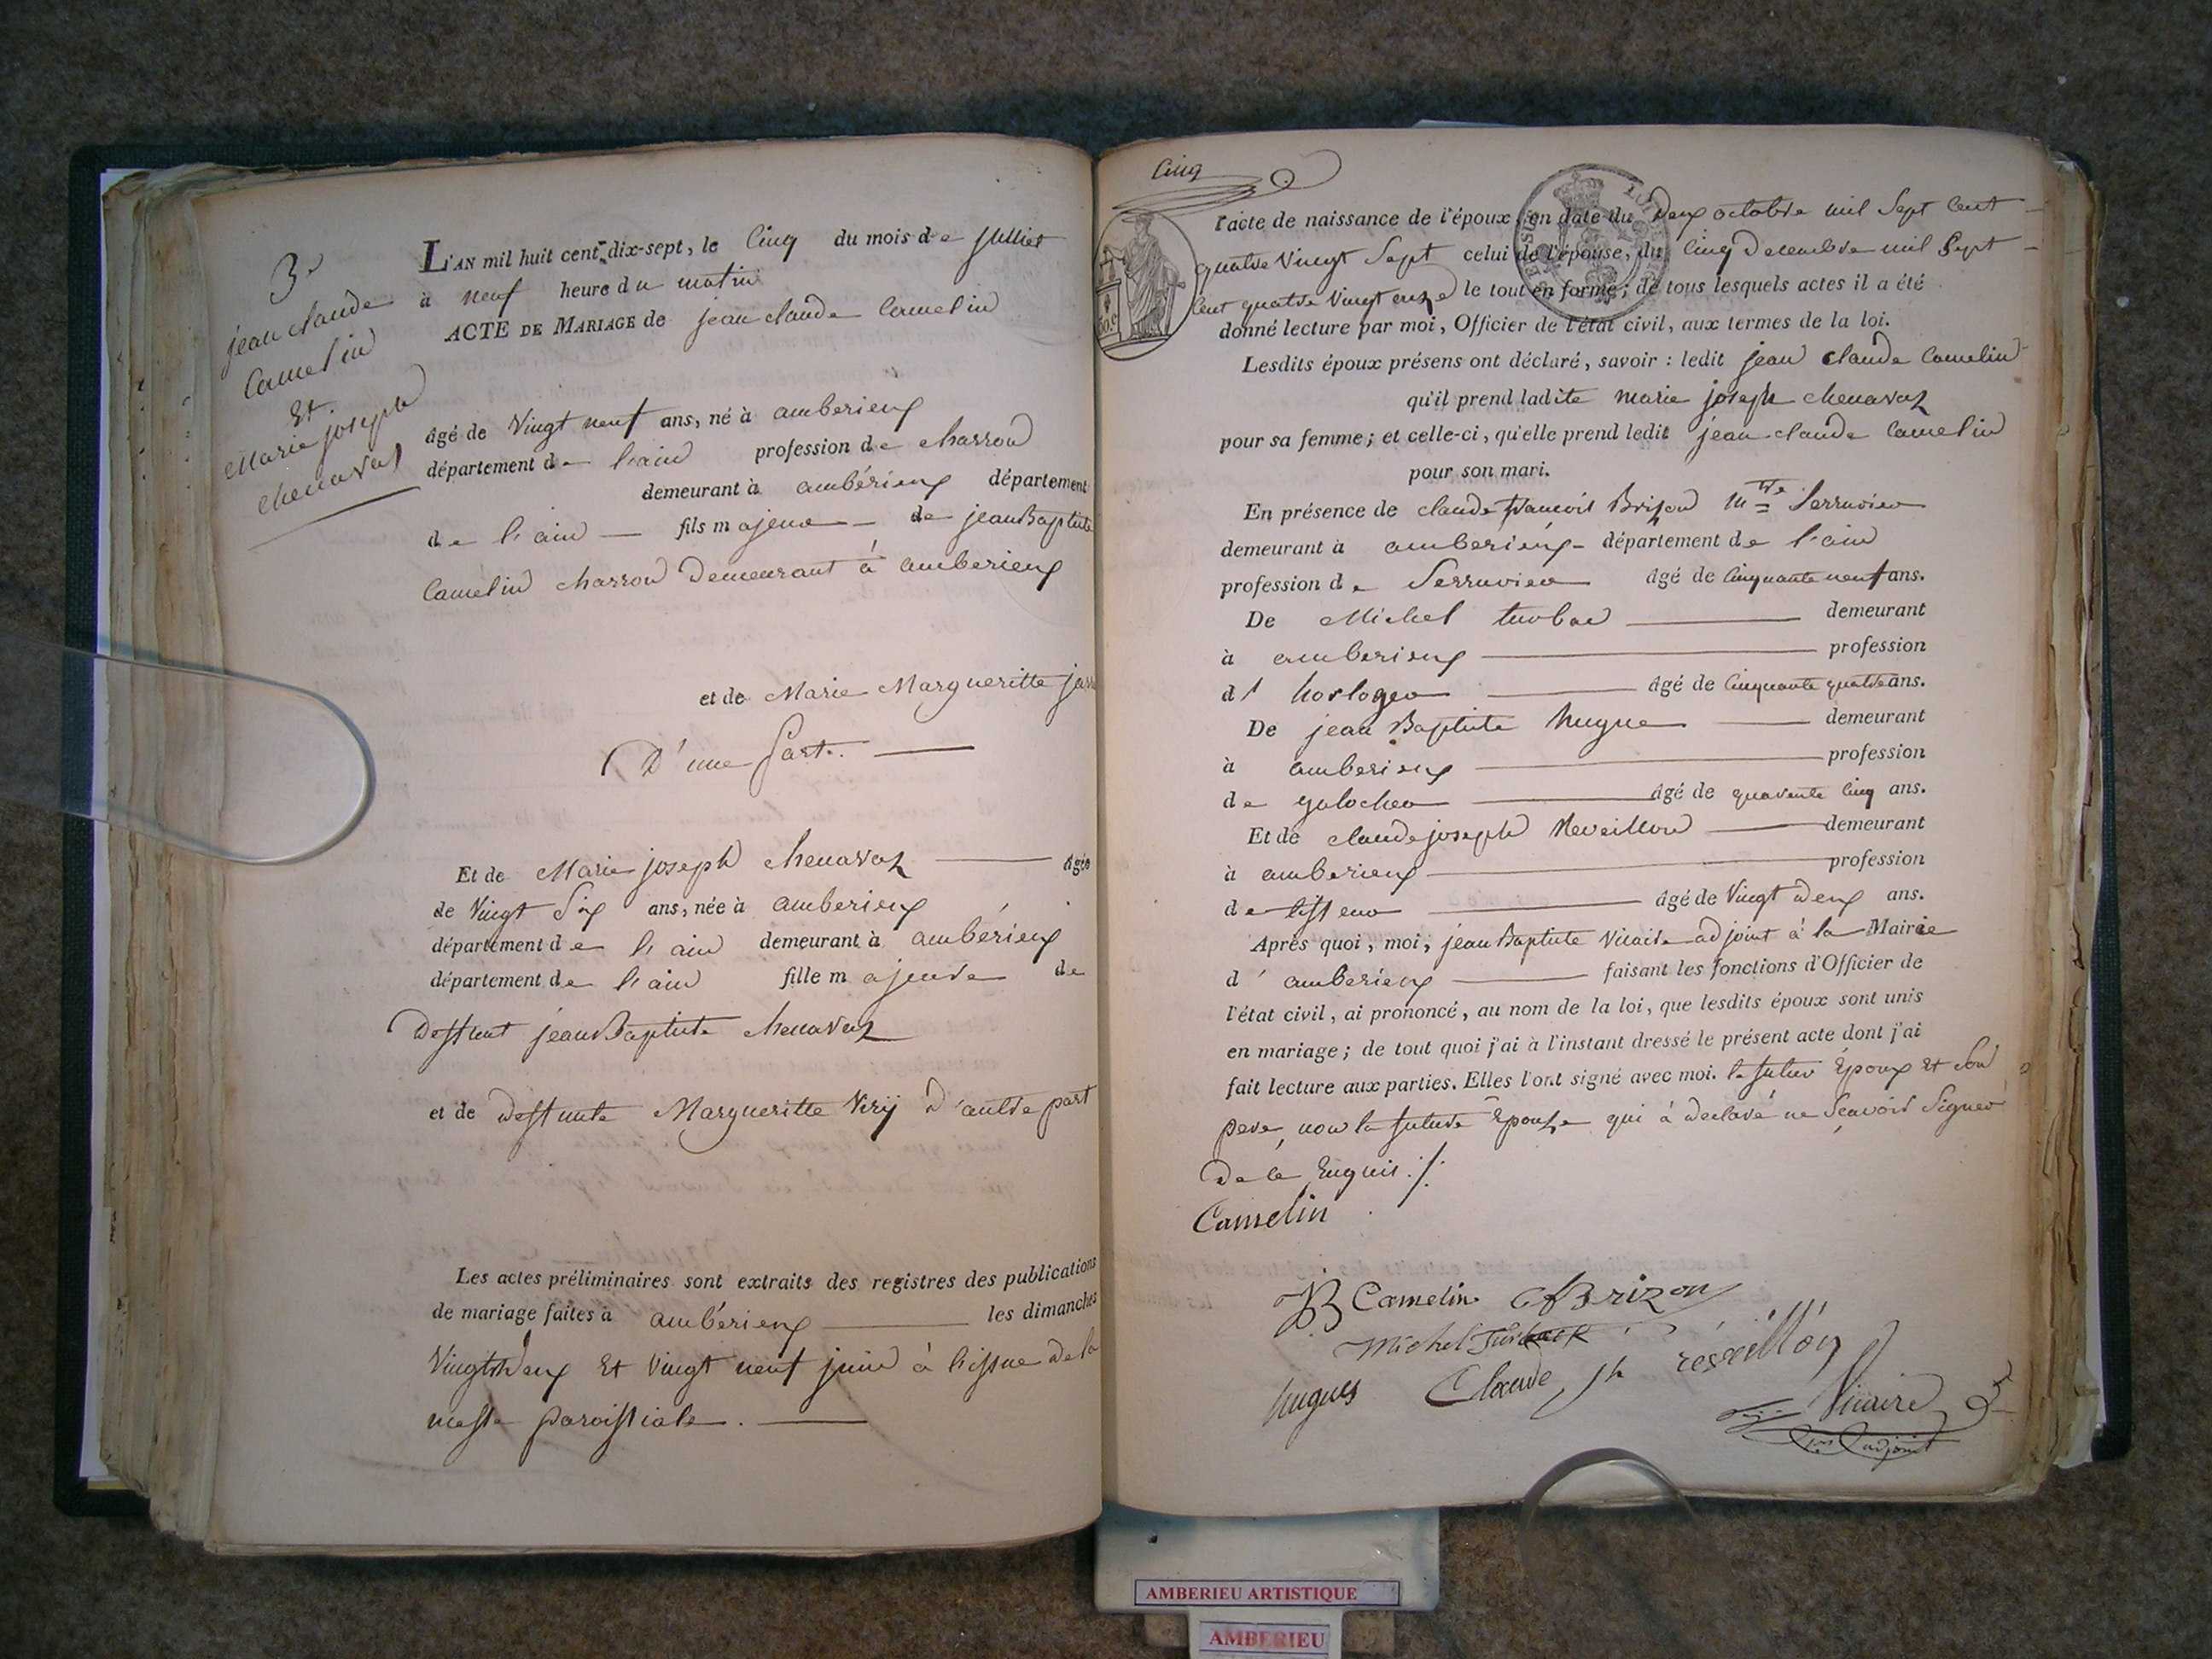 3e
jean claude
Camelin
Et
Marie joseph
chenavaz
L'AN mil huit cent dix-sept, le Cinq du mois de Juilliet
à neuf heure du matin
ACTE DE MARIAGE de jean claude Camelin
âgé de Vingt neuf ans, né à amberieux
département de l'ain profession de charron
demeurant à ambérieux département
de l'ain — fils majeur — de jean Baptiste
Camelin charron Demeurant à amberieux
et de Marie Margueritte
D'une Part. —
Et de Marie joseph chenavaz — âgée
de Vingt Six ans, née à amberieux
département de l'ain demeurant à ambérieux
département de l'ain fille majeure de
deffunt jean Baptiste chenavaz
et de deffunte Margueritte Véry D'autre part
Les actes préliminaires sont extraits des registres des publications
de mariage faites à ambérieux — les dimanches
Vingt Deux Et Vingt neuf juin à l'issue de la
messe paroissiale. —
Cinq
l'acte de naissance de l'époux, en date du Deux octobre mil Sept Cent
quatre Vingt Sept celui de l'épouse, du Cinq Decembre mil Sept
Cent quatre Vingt onze le tout en forme; de tous lesquels actes il a été
donné lecture par moi, Officier de l'état civil, aux termes de la loi.
Lesdits époux présens ont déclaré, savoir : ledit jean claude Camelin
qu'il prend ladite marie joseph chenavaz
pour sa femme; et celle-ci, qu'elle prend ledit jean claude Camelin
pour son mari.
En présence de claude francois Brizon mtre Serrurier
demeurant à amberieux département de l'ain
profession de Serrurier âgé de Cinquante neuf ans.
De Michel turbac — demeurant
à amberieux — profession
d' horloger — âgé de Cinquante quatre ans.
De jean Baptiste hugue — demeurant
à amberieux — profession
de galocher — âgé de quarente Cinq ans.
Et de claude joseph Reveillon — demeurant
à amberieux — profession
de tisseur — âgé de Vingt deux ans.
Après quoi, moi, jean Baptiste Vicaire adjoint à la Mairie
d' amberieux — faisant les fonctions d'Officier de
l'état civil, ai prononcé, au nom de la loi, que lesdits époux sont unis
en mariage; de tout quoi j'ai à l'instant dressé le présent acte dont j'ai
fait lecture aux parties. Elles l'ont signé avec moi. le futur Époux Et Son
pere, non la future Épouze qui à declaré ne Sçavoir Signer
De ce Enquis ./.
Camelin
JB Camelin CfBrizon
Michel
hugues Claude jh réveillon
Vicaire
adjoint
AMBERIEU ARTISTIQUE
AMBERIEU